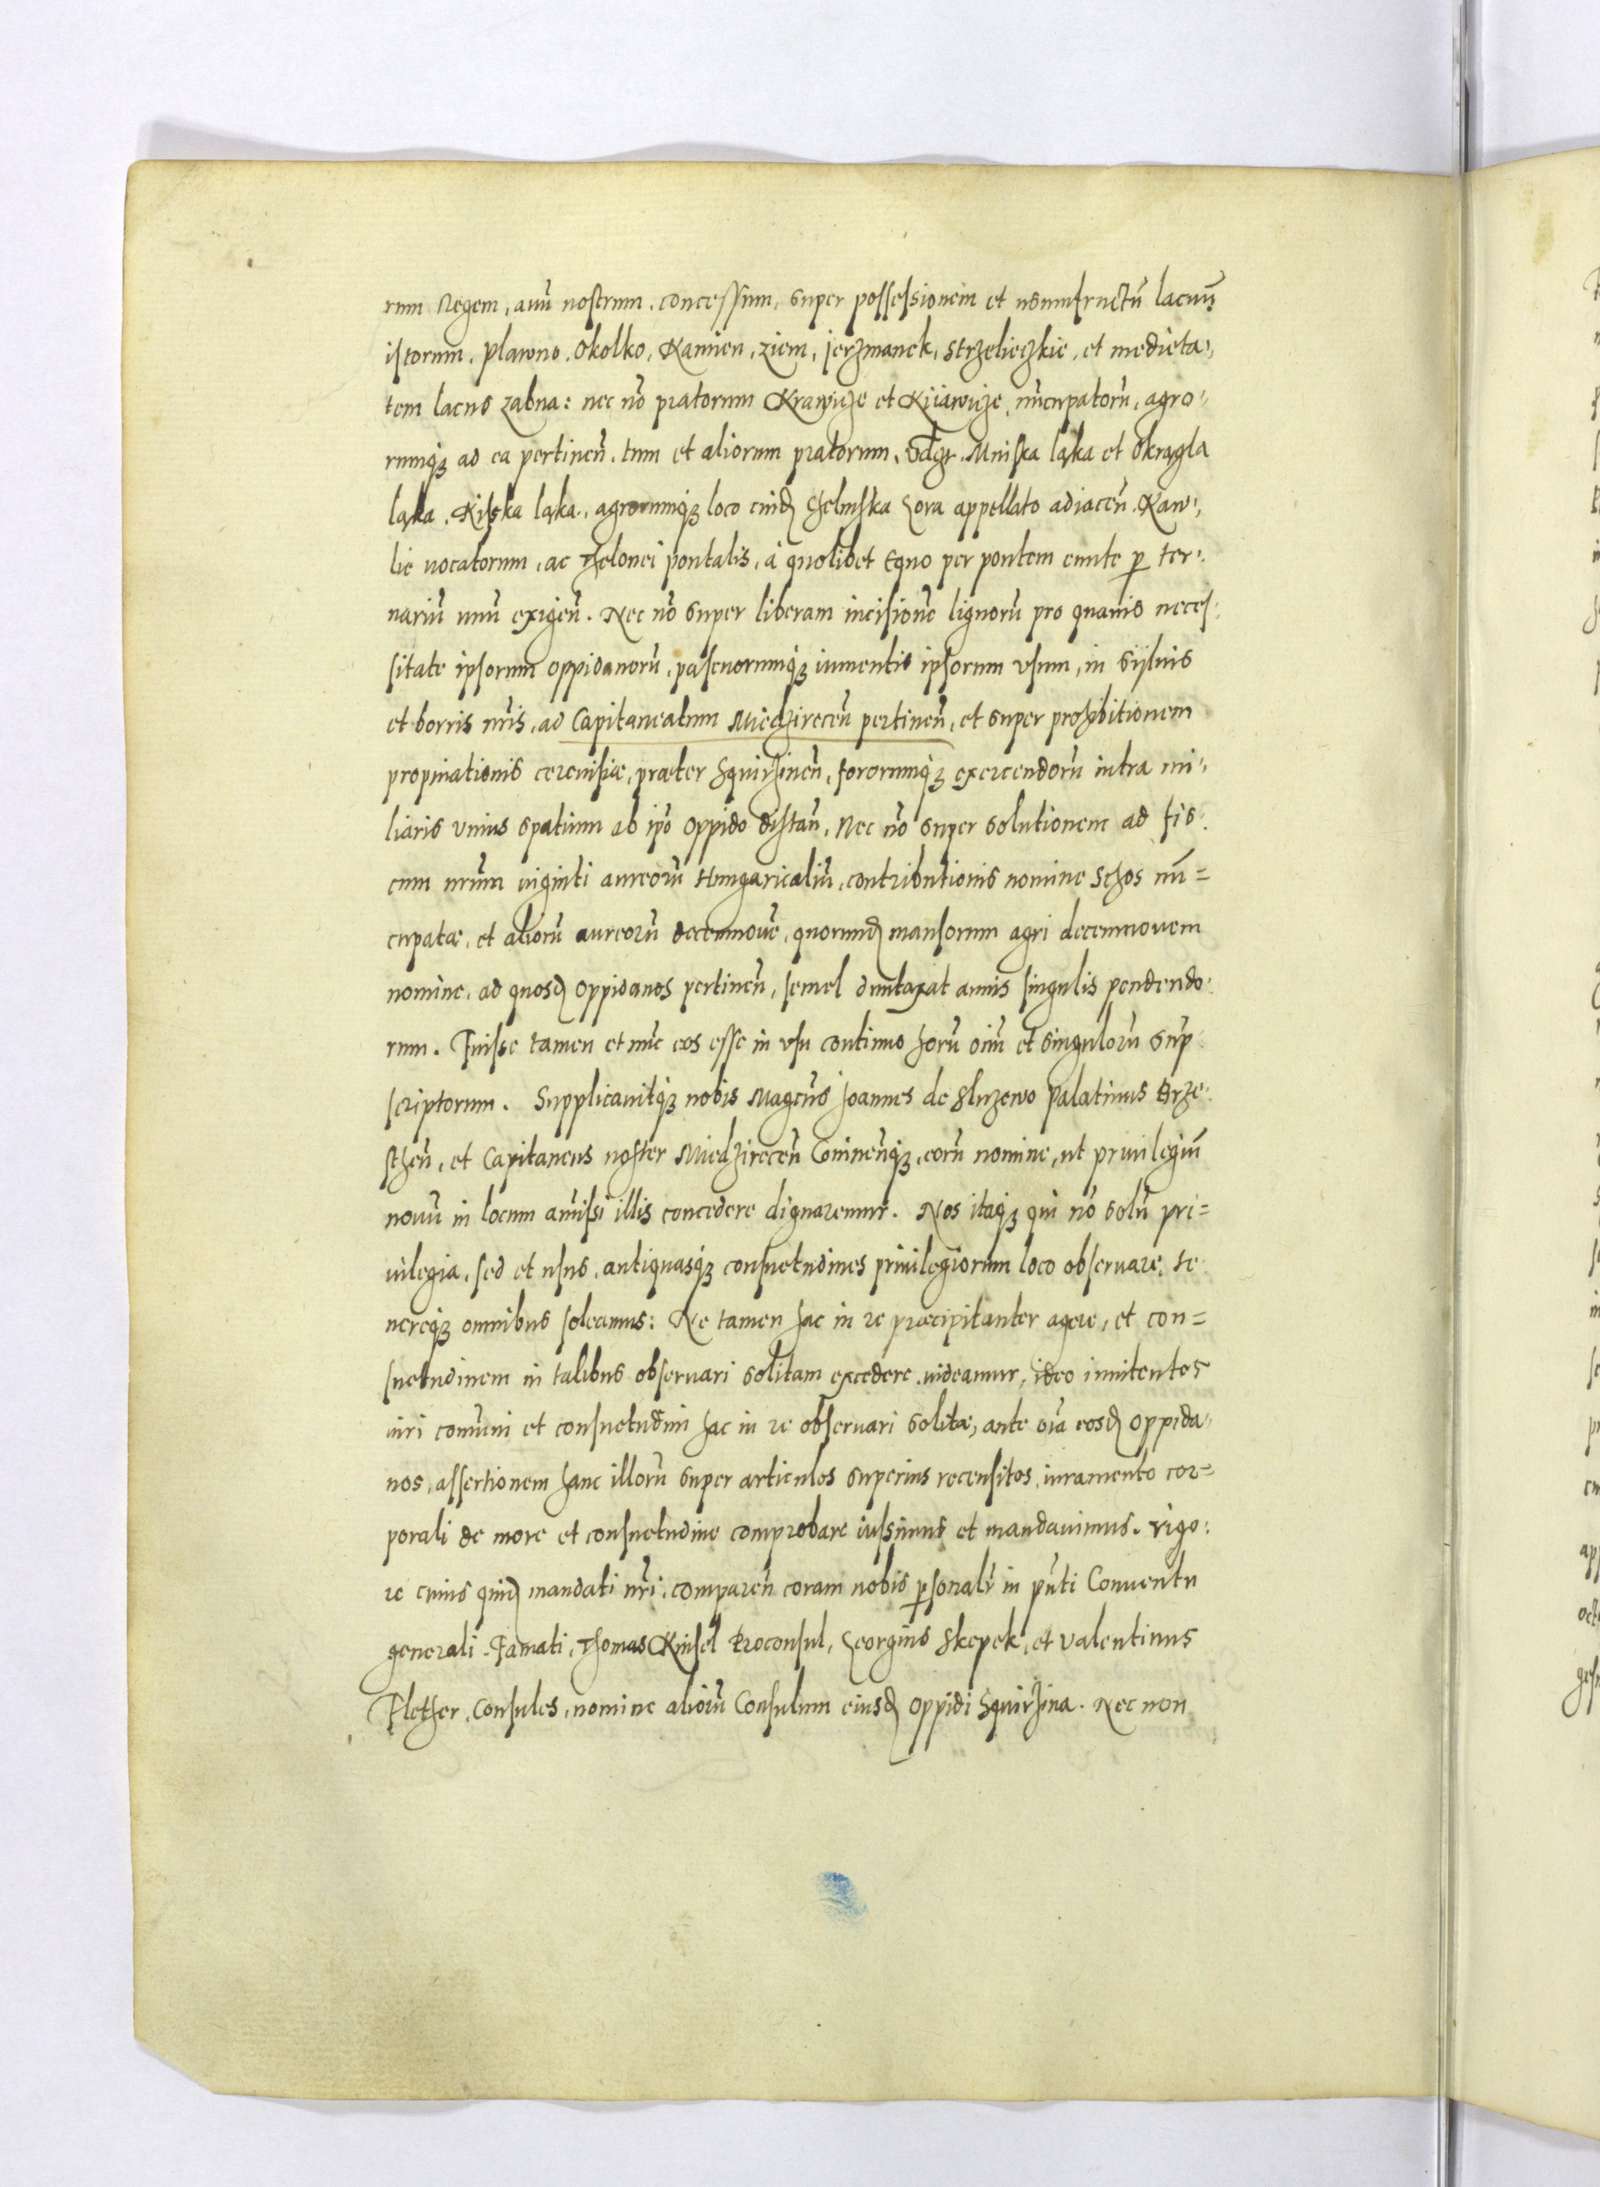 rum Regem, auū nostrum, concessum, super possessionem et usumfructū lacuū
istorum. Plawno. Okolko, Kamien, Ziem, Jerzmanek, Strzelieczkie, et medieta-
tem lacus Zabna: nec nō pratorum Krawyze et Kuiawyze nūcupatorū, agro-
rumq3 ad ea pertinen̄. tum et aliorum pratorum, Mniska laka et Okragla
laka, Kiska laka, agrorumq3 loco cuid̄ Chelmska Gora appellato adiacen̄. Kaw-
lie uocatorum, ac Thelonei pontalis, à quolibet Equo per pontem eunte p ter-
nariū unū exigen̄. Nec nō super liberam incisionē lignorū pro quauis neces-
sitate ipsorum oppidanorū, pascuorumq3 iumentis ipsorum vsum, in syluis
et borris nr̄is, ad Capitaneatum Miedzirecen̄ pertinen̄, et super prohibitionem
propinationis cereuisiæ, præter Squirzinen̄, fororumq3 exercendorū intra mi-
liaris vnius spatium ab ip̄o oppido distan̄, Nec nō super solutionem ad fis-
cum nr̄um uiginti aureorū Hungaricaliū, contributionis nomine Schos nū=
cupatæ, et aliorū aureorū decemnouē, quorund̄ mansorum agri decemnouem
nomine, ad quosd̄ oppidanos pertinen̄, semel duntaxat annis singulis pendendo-
rum. Fuisse tamen et nūc eos esse in vsu continuo horū oīm et singulorū sup-
scriptorum. Supplicauitq3 nobis Magcus Joannes de Sluzewo Palatinus Brze-
sthen̄, et Capitaneus noster Miedzirecen̄ Coninen̄q3, eorū nomine, ut priuilegiū
nouū in locum amissi illis concedere dignaremur. Nos itaq3 qui nō solū pri=
uilegia, sed et usus, antiquasq3 consuetudines priuilegiorum loco obseruare, te-
nereq3 omnibus soleamus: Ne tamen hac in re præcipitanter agere, et con=
suetudinem in talibus obseruari solitam excedere uideamur, ideo innitentes
iuri comūni et consuetudini hac in re obseruari solitæ, ante oīa eosd̄ oppida-
nos, assertionem hanc illorū super articulos superius recensitos, iuramento cor=
porali de more et consuetudine comprobare iussimus et mandauimus. Vigo-
re cuius quid̄ mandati nr̄i, comparen̄ coram nobis p̄sonalr̄ in pn̄ti Conuentu
generali Famati, Thomas Kinsel Proconsul, Georgius Skepek, et Valentinus
Flether, Consules, nomine aliorū Consulum eiusd̄ oppidi Squirzina. Nec non